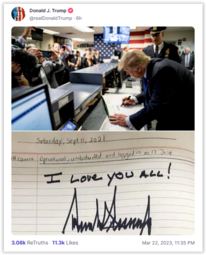 Donald J. Trump
@realDonaldTrump · 6h
Saturday, Sept 11, 2021
and
I LOVE YOU ALL!
3.08k ReTruths 11.3k Likes
Mar 22, 2023, 11:35 PM